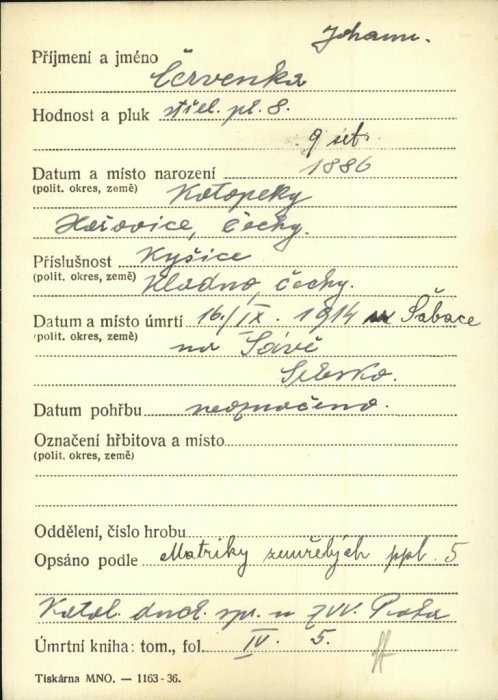 Johann.
Příjmení a jméno Červenka
Hodnost a pluk střel. pl. 8.
9 set.
Datum a místo narození 1886
(polit. okres, země) Kotopeky
Hořovice, Čechy.
Příslušnost Kyšice
(polit. okres, země) Kladno, Čechy.
Datum a místo úmrtí 16./IX. 1914 u Šabace
(polit. okres, země) na Sávě
Srbsko.
Datum pohřbu neoznačeno.
Označení hřbitova a místo
(polit. okres, země)
Oddělení, číslo hrobu
Opsáno podle Matriky zemřelých ppl. 5
Katol. duch. spr. u ZVV. Praha
Úmrtní kniha: tom., fol. IV. 5.
Tiskárna MNO. — 1163-36.